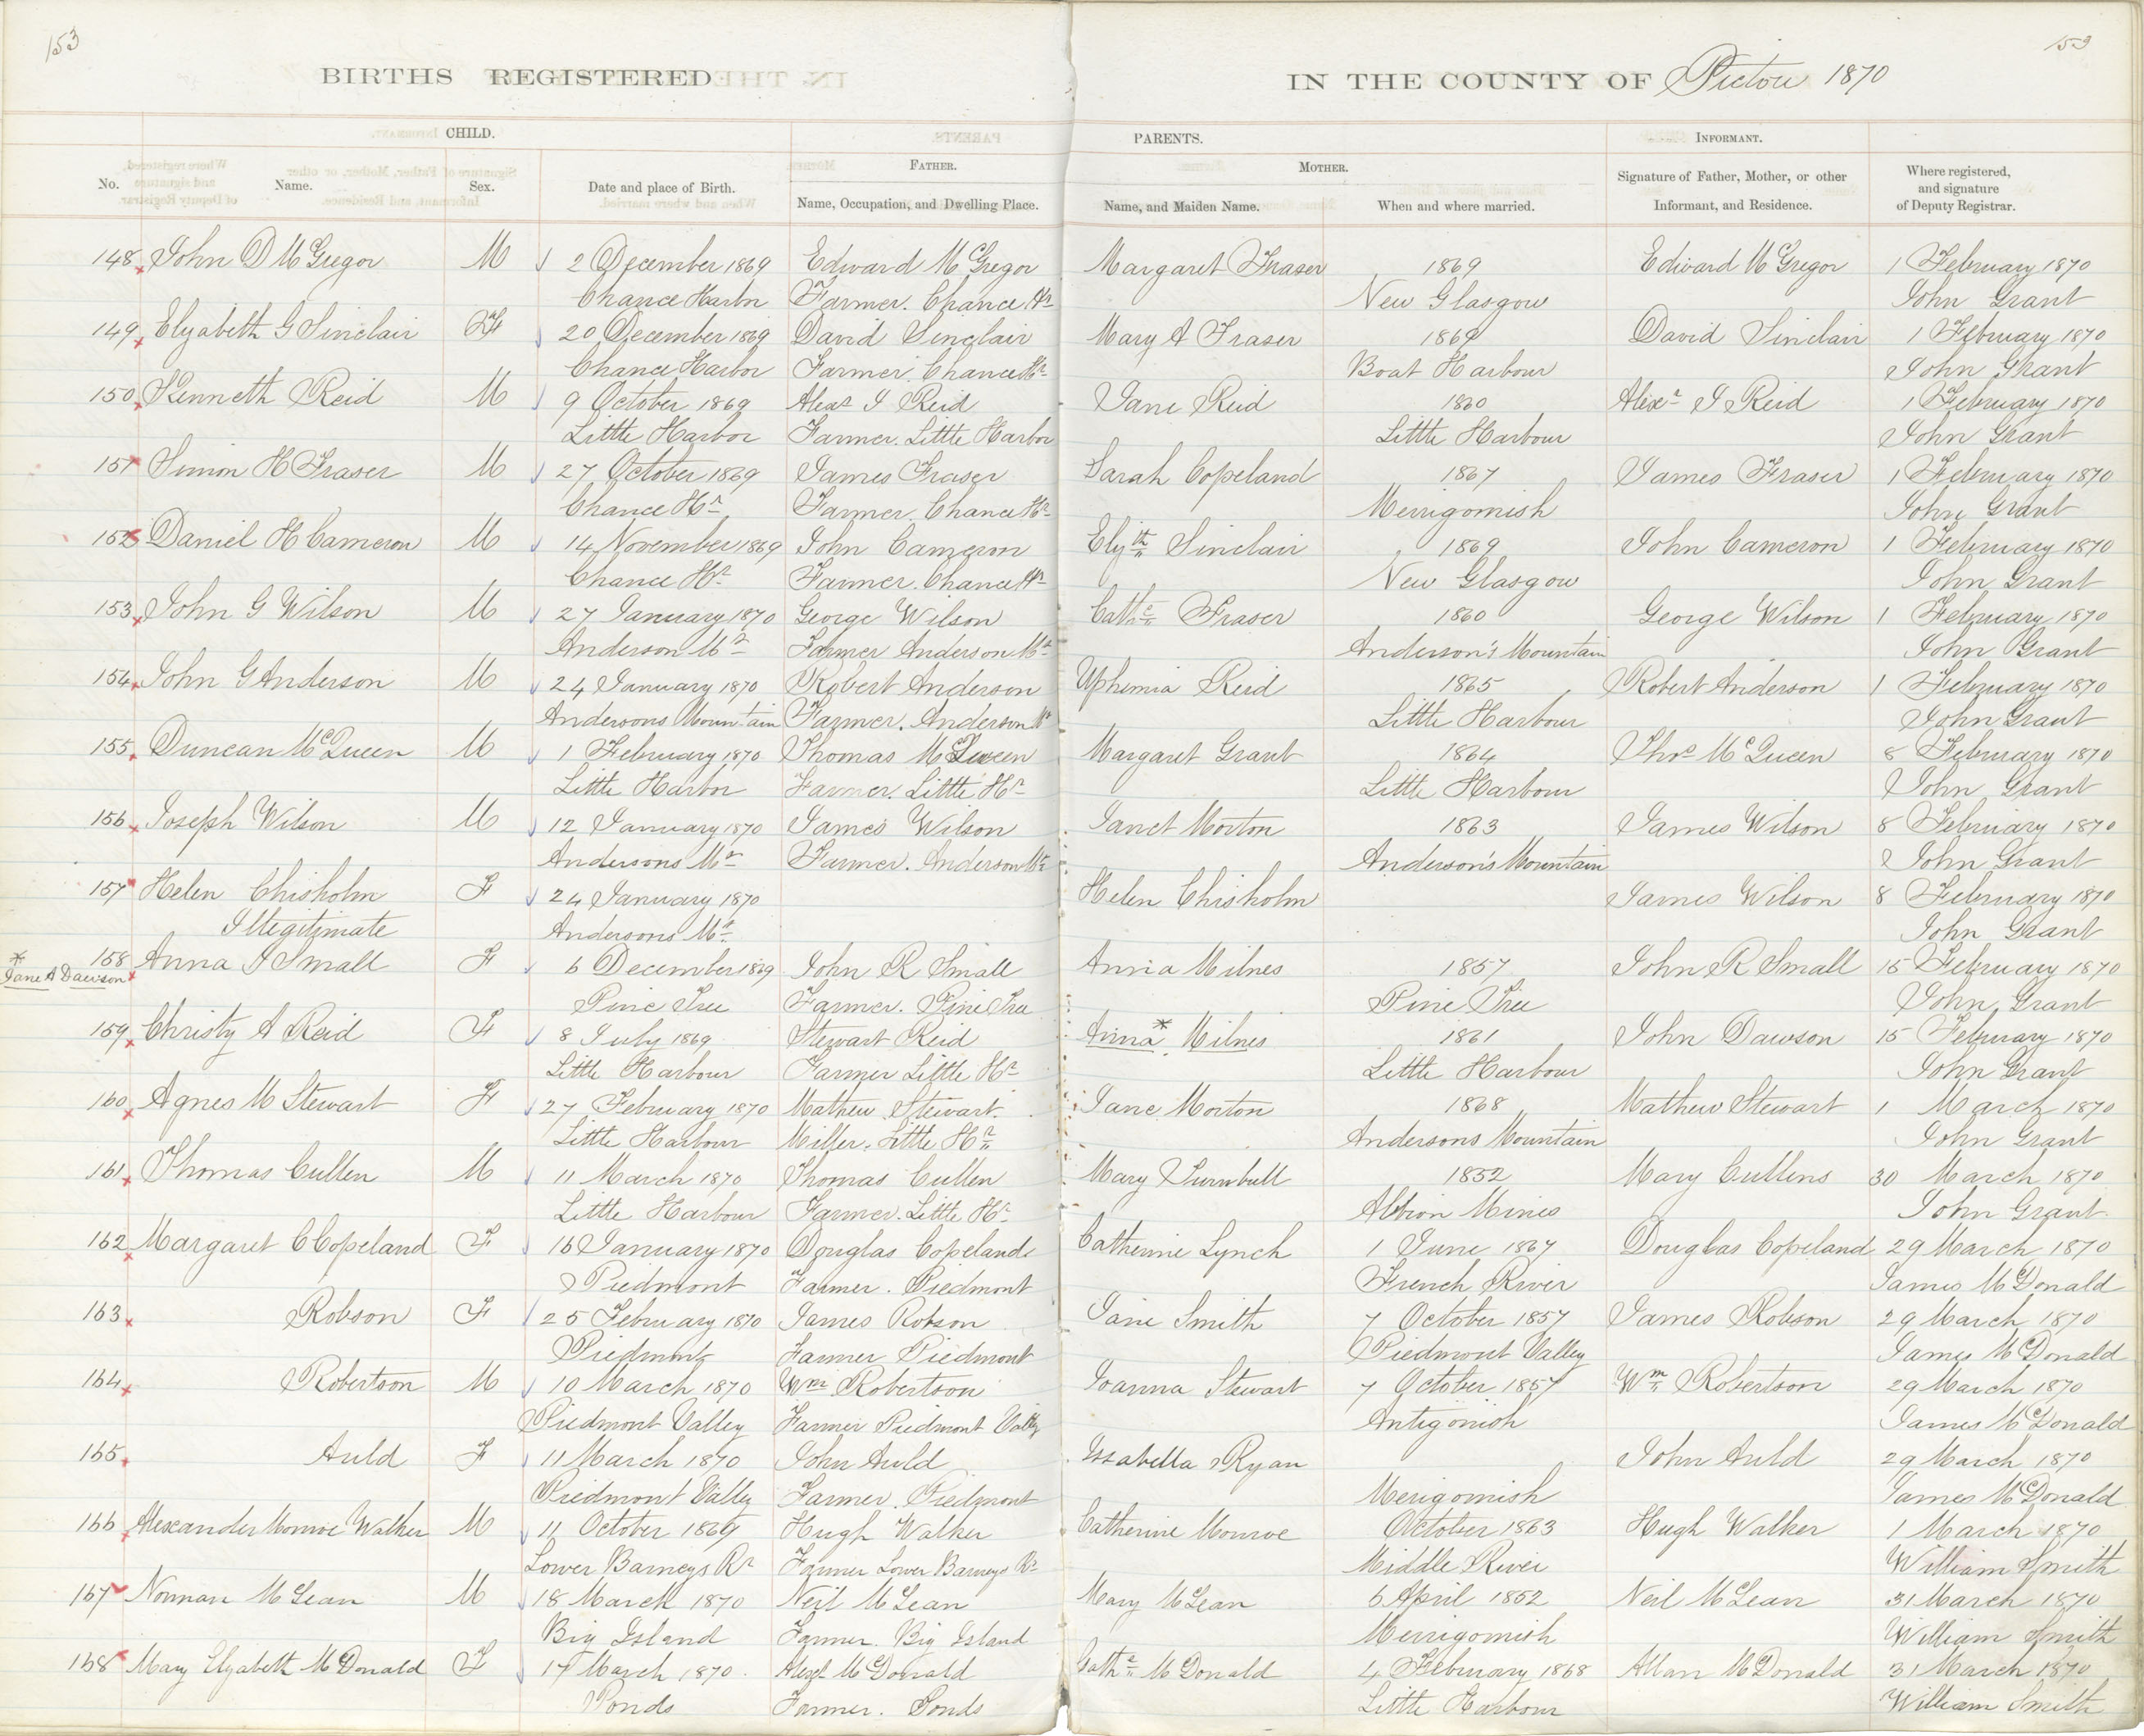 153
153
BIRTHS REGISTERED
IN THE COUNTY OF Pictou 1870
CHILD.
PARENTS.
INFORMANT.
No.
Name.
Sex.
Date and place of Birth.
FATHER.
Name, Occupation, and Dwelling Place.
MOTHER.
Name, and Maiden Name.
When and where married.
Signature of Father, Mother, or other
Informant, and Residence.
Where registered,
and signature
of Deputy Registrar.
148 John D McGregor M 2 December 1869 Edward McGregor Margaret Fraser 1869 Edward McGregor 1 February 1870
Chance Harbor Farmer. Chance Hr New Glasgow John Grant
149 Elizabeth G Sinclair F 20 December 1869 David Sinclair Mary A Fraser 1869 David Sinclair 1 February 1870
Chance Harbor Farmer. Chance Hr Boat Harbour John Grant
150 Kenneth Reid M 9 October 1869 Alexr J Reid Jane Reid 1860 Alexr J Reid 1 February 1870
Little Harbor Farmer. Little Harbor Little Harbour John Grant
151 Simon H Fraser M 27 October 1869 James Fraser Sarah Copeland 1867 James Fraser 1 February 1870
Chance Hr Farmer. Chance Hr Merrigomish John Grant
152 Daniel H Cameron M 14 November 1869 John Cameron Elizth Sinclair 1869 John Cameron 1 February 1870
Chance Hr Farmer. Chance Hr New Glasgow John Grant
153 John G Wilson M 27 January 1870 George Wilson Cathe Fraser 1860 George Wilson 1 February 1870
Anderson Mn Farmer Anderson Mn Anderson's Mountain John Grant
154 John G Anderson M 24 January 1870 Robert Anderson Uphemia Reid 1865 Robert Anderson 1 February 1870
Andersons Mountain Farmer. Anderson Mn Little Harbour John Grant
155 Duncan McQueen M 1 February 1870 Thomas McQueen Margaret Grant 1864 Thos McQueen 8 February 1870
Little Harbor Farmer. Little Hr Little Harbour John Grant
156 Joseph Wilson M 12 January 1870 James Wilson Janet Morton 1863 James Wilson 8 February 1870
Andersons Mn Farmer. Anderson Mn Anderson's Mountain John Grant
157 Helen Chisholm F 24 January 1870 Helen Chisholm James Wilson 8 February 1870
Illegitimate Andersons Mn John Grant
158 Anna J Small F 6 December 1869 John R Small Anna Milnes 1857 John R Small 15 February 1870
* Jane A Dawson Pine Tree Farmer. Pine Tree Pine Tree John Grant
159 Christy A Reid F 8 July 1869 Stewart Reid Anna * Milnes 1861 John Dawson 15 February 1870
Little Harbour Farmer Little Hr Little Harbour John Grant
160 Agnes M Stewart F 27 February 1870 Mathew Stewart Jane Morton 1868 Mathew Stewart 1 March 1870
Little Harbour Miller. Little Hr Andersons Mountain John Grant
161 Thomas Cullen M 11 March 1870 Thomas Cullen Mary Turnbull 1852 Mary Cullens 30 March 1870
Little Harbour Farmer. Little Hr Albion Mines John Grant
162 Margaret C Copeland F 16 January 1870 Douglas Copeland Catherine Lynch 1 June 1867 Douglas Copeland 29 March 1870
Piedmont Farmer. Piedmont French River James McDonald
163 Robson F 25 February 1870 James Robson Jane Smith 7 October 1857 James Robson 29 March 1870
Piedmont Farmer Piedmont Piedmont Valley James McDonald
164 Robertson M 10 March 1870 Wm Robertson Joanna Stewart 7 October 1857 Wm Robertson 29 March 1870
Piedmont Valley Farmer Piedmont Valley Antigonish James McDonald
165 Auld F 11 March 1870 John Auld Issabella Ryan John Auld 29 March 1870
Piedmont Valley Farmer. Piedmont Merigomish James McDonald
166 Alexander Monroe Walker M 11 October 1869 Hugh Walker Catherine Monroe October 1863 Hugh Walker 1 March 1870
Lower Barneys Rr Farmer Lower Barneys Rr Middle River William Smith
167 Norman McLean M 18 March 1870 Neil McLean Mary McLean 6 April 1852 Neil McLean 31 March 1870
Big Island Farmer. Big Island Merrigomish William Smith
168 Mary Elizabeth McDonald F 17 March 1870 Alexr McDonald Cathe McDonald 4 February 1868 Allan McDonald 31 March 1870
Ponds Farmer. Ponds Little Harbour William Smith